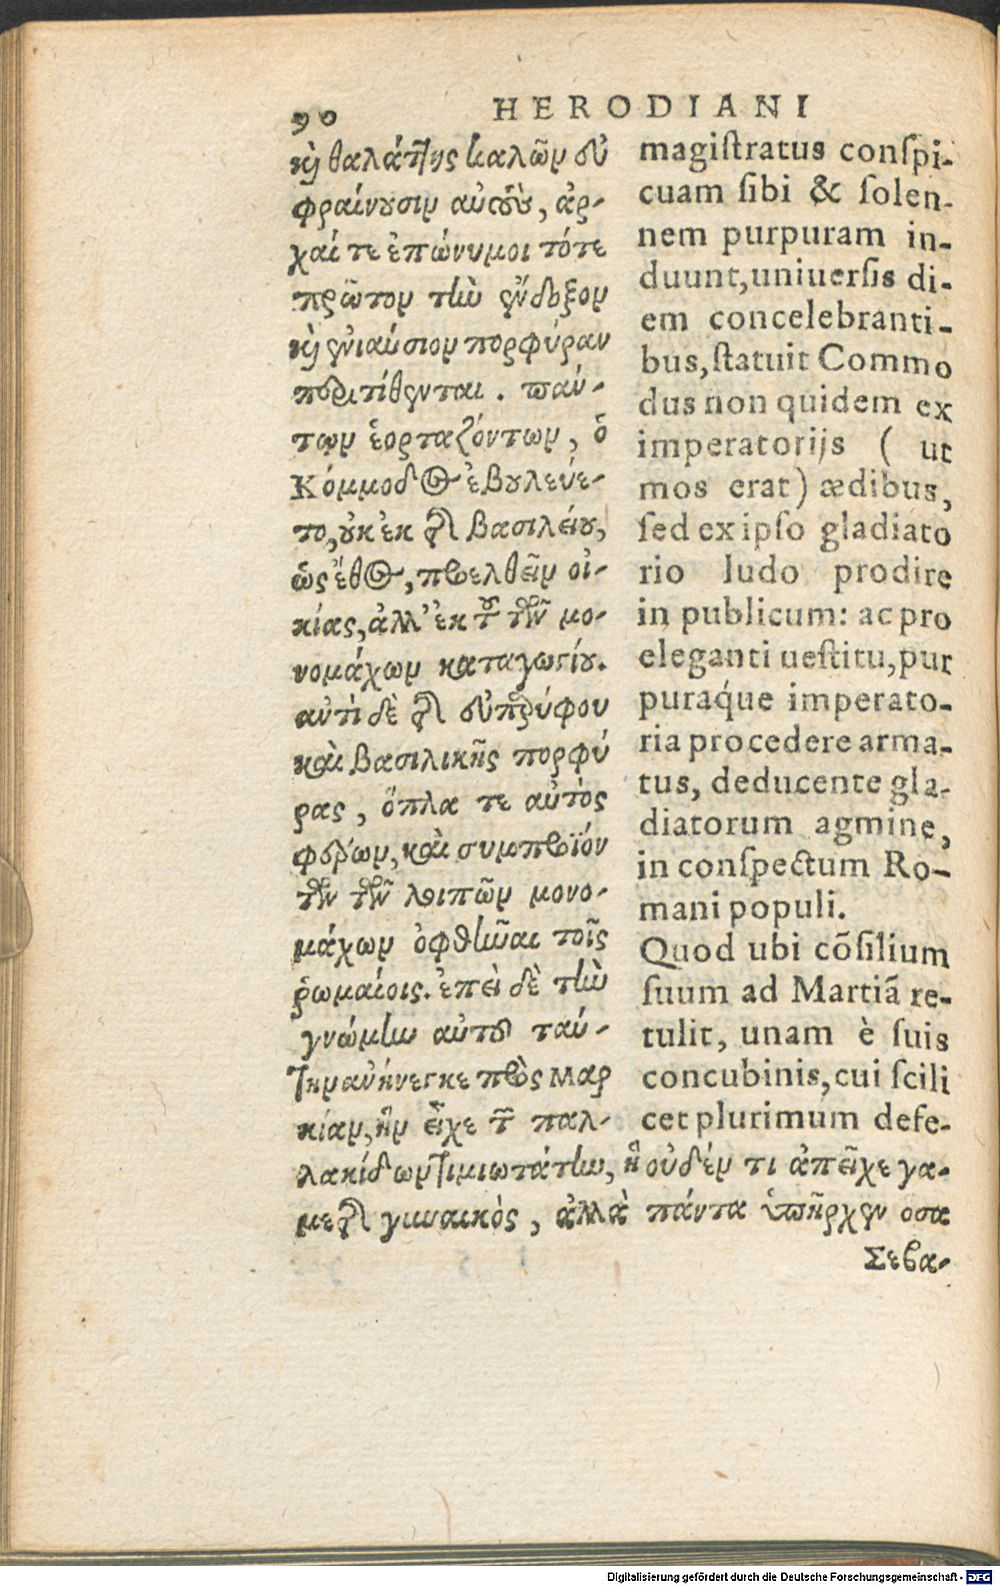 90 HERODIANI
καὶ θαλάττης καλῶν εὐ
φραίνουσιν αὑτοὺς, ἀρ-
χαί τε ἐπώνυμοι τότε
πρῶτον τὴν ἔνδοξον
καὶ ἐνιαύσιον πορφύραν
περιτίθενται. πάν-
των ἑορταζόντων, ὁ
Κόμμοδος ἐβουλεύε-
το, οὐκ ἐκ τῆς βασιλείου,
ὡς ἔθος, προελθεῖν οἰ-
κίας, ἀλλ' ἐκ τοῦ τῶν μο-
νομάχων καταγωγίου.
αὐτὶ δὲ τῆς εὐπαρύφου
καὶ βασιλικῆς πορφύ
ρας, ὅπλα τε αὐτὸς
φέρων, καὶ συμπροϊόν
των τῶν λοιπῶν μονο-
μάχων ὀφθῆναι τοῖς
ῥωμαίοις. ἐπεὶ δὲ τὴν
γνώμην αὐτοῦ ταύ-
την ἀνήνεγκε πρὸς Μαρ
κίαν, ἣν εἶχε τῶν παλ-
λακίδων τιμιωτάτην, ἣ οὐδέν τι ἀπεῖχε γα-
μετῆς γυναικὸς, ἀλλὰ πάντα ὑπῆρχεν ὅσα
Σεβα-
magistratus conspi-
cuam sibi & solen-
nem purpuram in-
duunt, uniuersis di-
em concelebranti-
bus, statuit Commo
dus non quidem ex
imperatorijs ( ut
mos erat) ædibus,
sed ex ipso gladiato
rio ludo prodire
in publicum: ac pro
eleganti uestitu, pur
puraq́ue imperato-
ria procedere arma-
tus, deducente gla-
diatorum agmine,
in conspectum Ro-
mani populi.
Quod ubi cõsilium
suum ad Martiã re-
tulit, unam è suis
concubinis, cui scili
cet plurimum defe-
Digitalisierung gefördert durch die Deutsche Forschungsgemeinschaft - DFG